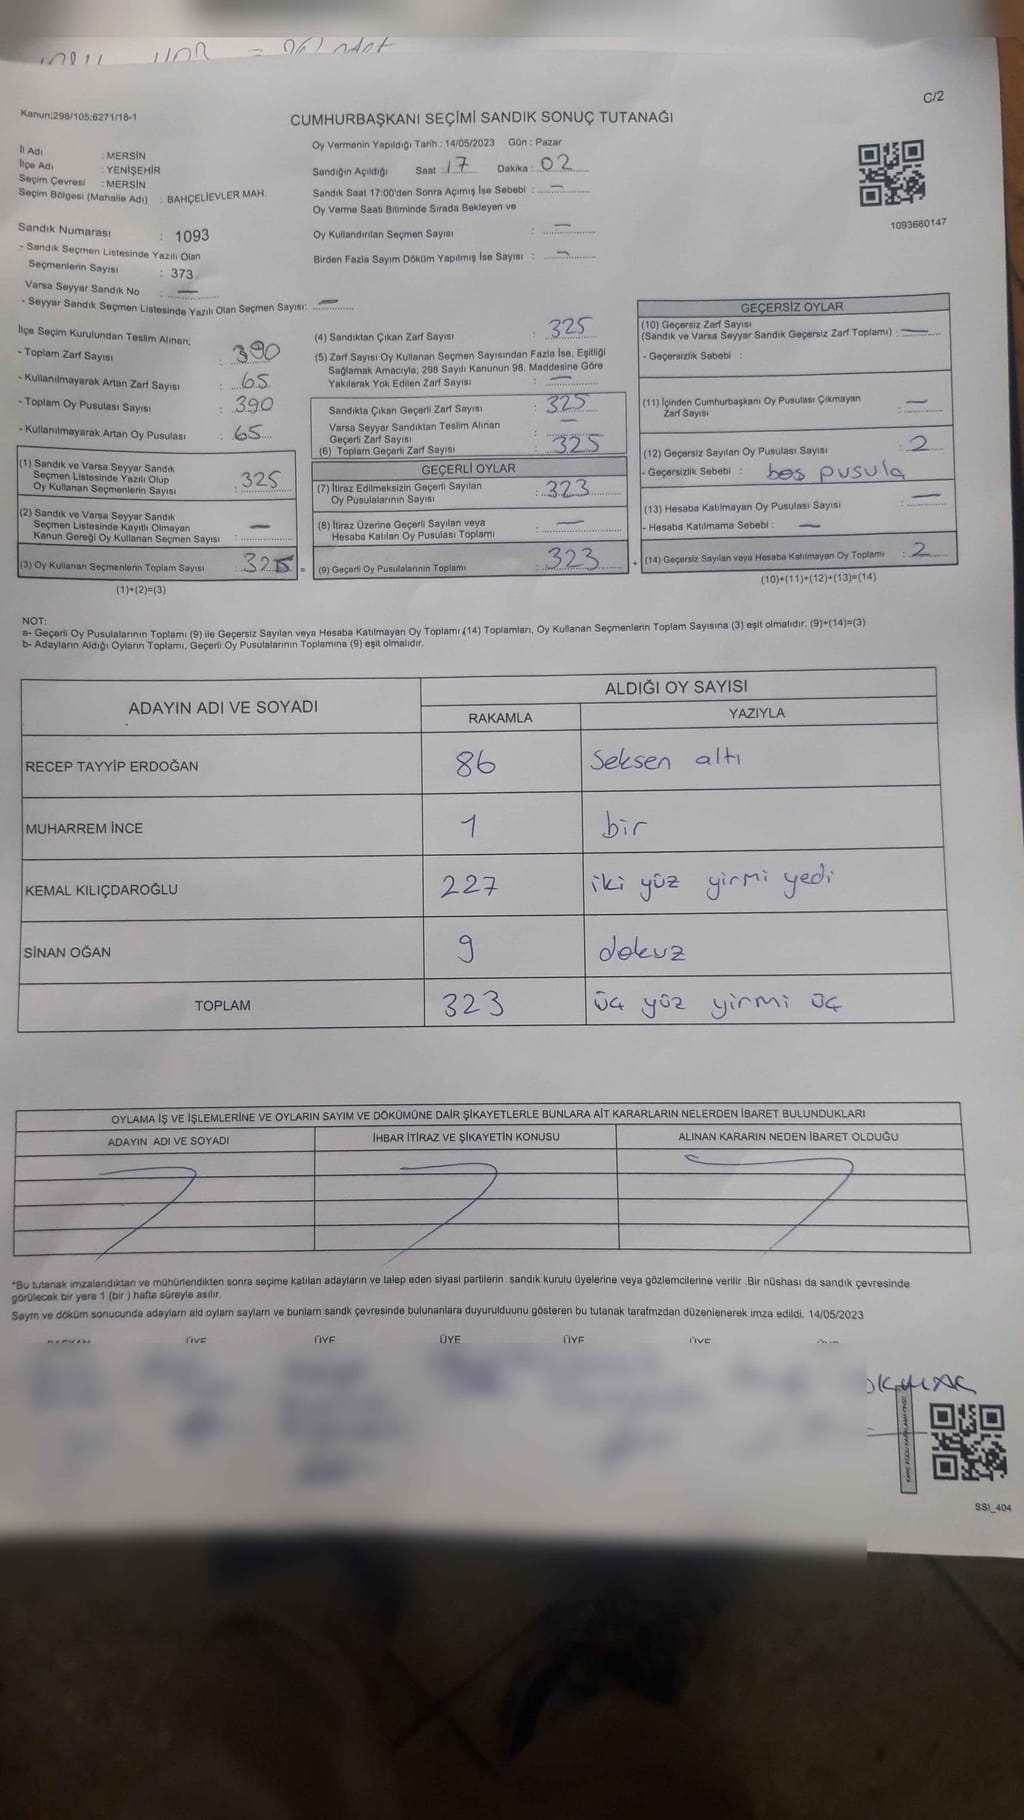 C/2
Kanun;298/105;6271/18-1
CUMHURBAŞKANI SEÇİMİ SANDIK SONUÇ TUTANAĞI
İl Adı : MERSİN
İlçe Adı : YENİŞEHİR
Seçim Çevresi : MERSİN
Seçim Bölgesi (Mahalle Adı) : BAHÇELİEVLER MAH.
Sandık Numarası : 1093
- Sandık Seçmen Listesinde Yazılı Olan
Seçmenlerin Sayısı : 373
Varsa Seyyar Sandık No : —
- Seyyar Sandık Seçmen Listesinde Yazılı Olan Seçmen Sayısı: —
Oy Vermenin Yapıldığı Tarih : 14/05/2023 Gün : Pazar
Sandığın Açıldığı Saat : 17 Dakika : 02
Sandık Saat 17:00'den Sonra Açılmış İse Sebebi : —
Oy Verme Saati Bitiminde Sırada Bekleyen ve
Oy Kullandırılan Seçmen Sayısı : —
Birden Fazla Sayım Döküm Yapılmış İse Sayısı : —
1093660147
İlçe Seçim Kurulundan Teslim Alınan;
- Toplam Zarf Sayısı : 390
- Kullanılmayarak Artan Zarf Sayısı : 65
- Toplam Oy Pusulası Sayısı : 390
- Kullanılmayarak Artan Oy Pusulası : 65
(1) Sandık ve Varsa Seyyar Sandık
Seçmen Listesinde Yazılı Olup
Oy Kullanan Seçmenlerin Sayısı : 325
(2) Sandık ve Varsa Seyyar Sandık
Seçmen Listesinde Kayıtlı Olmayan
Kanun Gereği Oy Kullanan Seçmen Sayısı : —
(3) Oy Kullanan Seçmenlerin Toplam Sayısı : 325 =
(1)+(2)=(3)
(4) Sandıktan Çıkan Zarf Sayısı : 325
(5) Zarf Sayısı Oy Kullanan Seçmen Sayısından Fazla İse, Eşitliği
Sağlamak Amacıyla; 298 Sayılı Kanunun 98. Maddesine Göre
Yakılarak Yok Edilen Zarf Sayısı : —
Sandıkta Çıkan Geçerli Zarf Sayısı : 325
Varsa Seyyar Sandıktan Teslim Alınan
Geçerli Zarf Sayısı : —
(6) Toplam Geçerli Zarf Sayısı : 325
GEÇERLİ OYLAR
(7) İtiraz Edilmeksizin Geçerli Sayılan
Oy Pusulalarının Sayısı : 323
(8) İtiraz Üzerine Geçerli Sayılan veya
Hesaba Katılan Oy Pusulası Toplamı : —
(9) Geçerli Oy Pusulalarının Toplamı : 323 +
GEÇERSİZ OYLAR
(10) Geçersiz Zarf Sayısı
(Sandık ve Varsa Seyyar Sandık Geçersiz Zarf Toplamı) : —
- Geçersizlik Sebebi :
(11) İçinden Cumhurbaşkanı Oy Pusulası Çıkmayan
Zarf Sayısı : —
(12) Geçersiz Sayılan Oy Pusulası Sayısı : 2
- Geçersizlik Sebebi : boş pusula
(13) Hesaba Katılmayan Oy Pusulası Sayısı : —
- Hesaba Katılmama Sebebi : —
(14) Geçersiz Sayılan veya Hesaba Katılmayan Oy Toplamı : 2
(10)+(11)+(12)+(13)=(14)
NOT:
a- Geçerli Oy Pusulalarının Toplamı (9) ile Geçersiz Sayılan veya Hesaba Katılmayan Oy Toplamı (14) Toplamları, Oy Kullanan Seçmenlerin Toplam Sayısına (3) eşit olmalıdır. (9)+(14)=(3)
b- Adayların Aldığı Oyların Toplamı, Geçerli Oy Pusulalarının Toplamına (9) eşit olmalıdır.
ADAYIN ADI VE SOYADI
ALDIĞI OY SAYISI
RAKAMLA YAZIYLA
RECEP TAYYİP ERDOĞAN 86 Seksen altı
MUHARREM İNCE 1 bir
KEMAL KILIÇDAROĞLU 227 iki yüz yirmi yedi
SİNAN OĞAN 9 dokuz
TOPLAM 323 üç yüz yirmi üç
OYLAMA İŞ VE İŞLEMLERİNE VE OYLARIN SAYIM VE DÖKÜMÜNE DAİR ŞİKAYETLERLE BUNLARA AİT KARARLARIN NELERDEN İBARET BULUNDUKLARI
ADAYIN ADI VE SOYADI İHBAR İTİRAZ VE ŞİKAYETİN KONUSU ALINAN KARARIN NEDEN İBARET OLDUĞU
*Bu tutanak imzalandıktan ve mühürlendikten sonra seçime katılan adayların ve talep eden siyasi partilerin sandık kurulu üyelerine veya gözlemcilerine verilir .Bir nüshası da sandık çevresinde
görülecek bir yere 1 (bir ) hafta süreyle asılır.
Saym ve döküm sonucunda adaylarn ald oylarn saylarn ve bunlarn sandk çevresinde bulunanlara duyurulduunu gösteren bu tutanak tarafmzdan düzenlenerek imza edildi. 14/05/2023
ÜYE ÜYE ÜYE ÜYE ÜYE
SSI_404